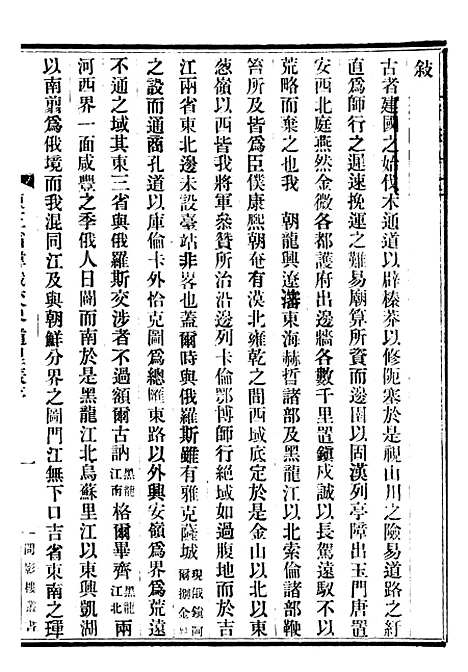 敍
古者建國之始伐木通道以辟榛莽以修阨塞於是視山川之險易道路之紆
直爲師行之遲速挽運之難易廟算所資而邊圉以固漢列亭障出玉門唐置
安西北庭燕然金微各都護府出邊牆各數千里置鎭戍誠以長駕遠馭不以
荒略而棄之也我　朝龍興遼瀋東海赫哲諸部及黑龍江以北索倫諸部鞭
笞所及皆爲臣僕康熙朝奄有漠北雍乾之間西域底定於是金山以北以東
葱嶺以西皆我將軍參贊所治沿邊列卡倫鄂博師行絶域如過腹地而於吉
江兩省東北邊未設臺站非畧也蓋爾時與俄羅斯雖有雅克薩城現俄鎭阿爾捌金
之設而通商孔道以庫倫卡外恰克圖爲總匯東路以外興安嶺爲界爲荒遠
不通之域其東三省與俄羅斯交涉者不過額爾古訥黑龍江南格爾畢齊黑龍江北兩
河西界一面咸豐之季俄人日闢而南於是黑龍江北烏蘇里江以東興凱湖
以南剪爲俄境而我混同江及與朝鮮分界之圖門江無下口吉省東南之琿
一
問影樓叢書